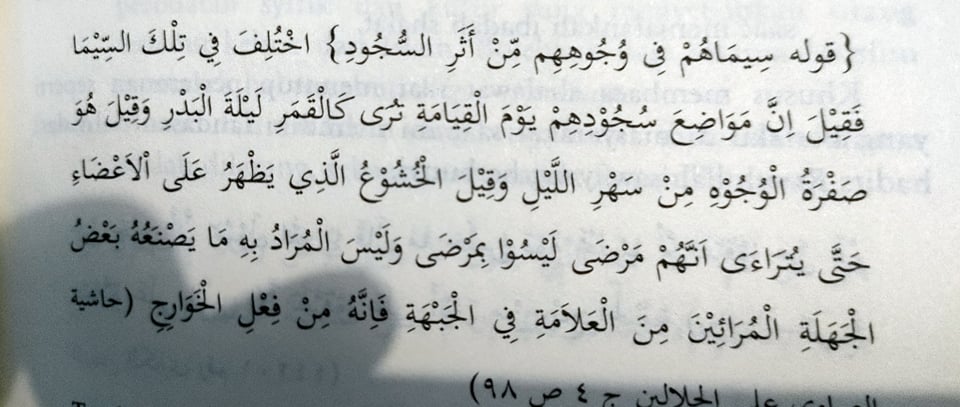 {قوله سِيمَاهُمْ فِى وُجُوهِهِم مِّنْ أَثَرِ السُّجُودِ} اخْتُلِفَ فِي تِلْكَ السِّيْمَا
فَقِيْلَ انَّ مَوَاضِعَ سَجُوْدِهِم يَوْمَ الْقِيَامَةِ تُرَى كَالْقَمَرِ لَيْلَةَ الْبَدَرِ وَقِيْلَ هُوَ
صفْرَةُ الْوُجُوْهِ مِنْ سَهْرِ اللَّيْلِ وَقِيْلَ الْخُشُوْعُ الَّذِي يَظْهَرُ عَلَى اْلاَعْضَاءِ
حَتَّى يُتَرَاءَى اَنَّهُمْ مَرْضَى لَيْسُوْا بِمَرْضَى وَلَيْسَ الْمُرَادُ بِهِ مَا يَصْنَعُهُ بَعْضُ
الْجَهَلَةِ الْمُرَائِيْنَ مِنَ الْعَلاَمَةِ فِي الْجَبْهَةِ فَاِنَّهُ مِنْ فِعْلِ الْخَوَارِجِ (حاشية
الصاوى على الجلالين ج ٤ ص ٩٨)